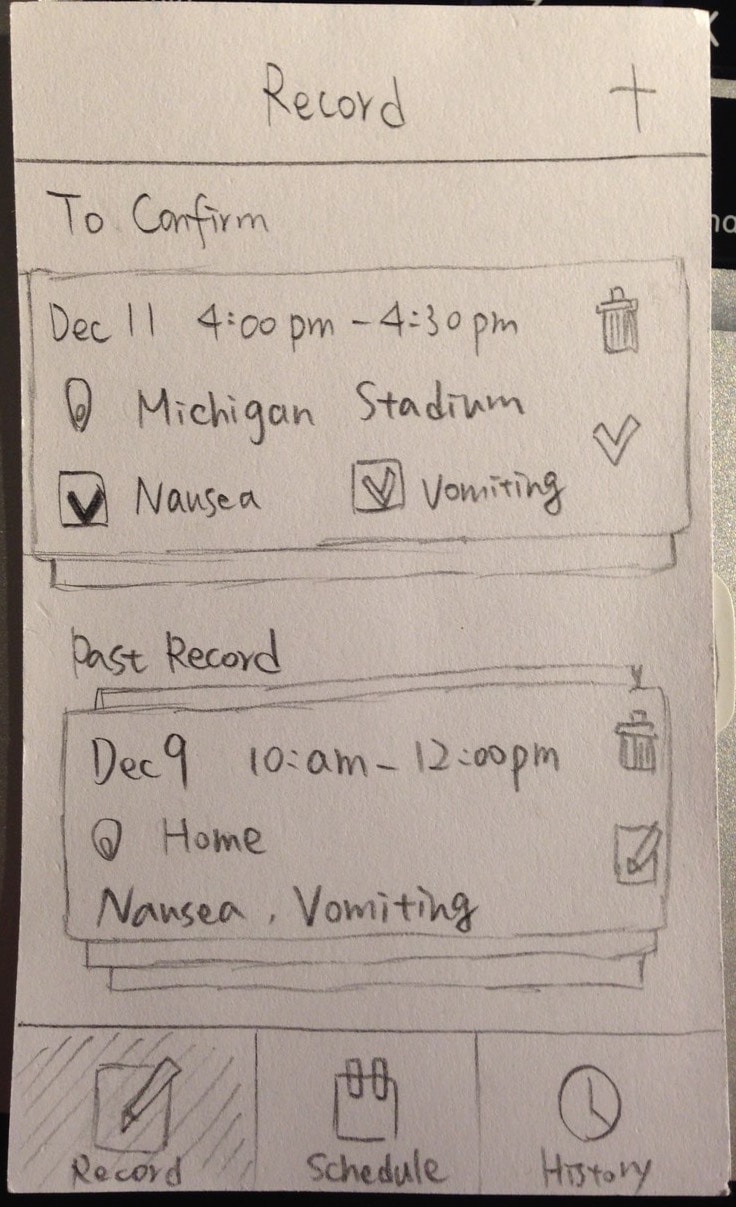 Record +
To Confirm
Dec 11 4:00 pm - 4:30 pm
Michigan Stadium
Nausea Vomiting
Past Record
Dec 9 10:am - 12:00pm
Home
Nausea, Vomiting
Record Schedule History